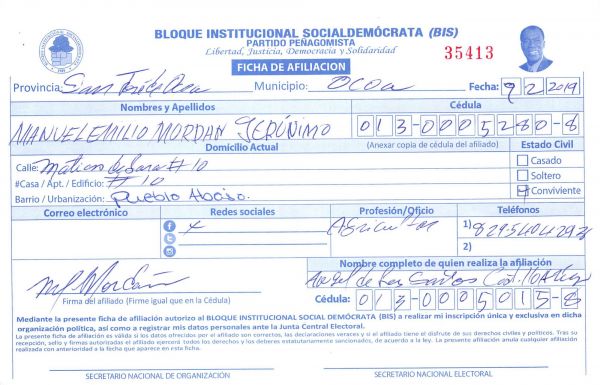 BLOQUE INSTITUCIONAL SOCIALDEMÓCRATA (BIS)
PARTIDO PEÑAGOMISTA
Libertad, Justicia, Democracia y Solidaridad
35413
FICHA DE AFILIACION
Provincia: San José de Ocoa Municipio: OCOA Fecha: 9/2/2019
Nombres y Apellidos Cédula
MANUEL EMILIO MORDAN JERÓNIMO 013-0005280-8
Domicilio Actual (Anexar copia de cédula del afiliado) Estado Civil
Calle: Matias de Lara # 10 Casado
#Casa / Apt. / Edificio: # 10 Soltero
Barrio / Urbanización: Pueblo Abajo. Conviviente
Correo electrónico Redes sociales Profesión/Oficio Teléfonos
x Agricultor 1)
2)
Nombre completo de quien realiza la afiliación
Angel de los Santos
Firma del afiliado (Firme igual que en la Cédula) Cédula: 013-0005015-8
Mediante la presente ficha de afiliación autorizo al BLOQUE INSTITUCIONAL SOCIAL DEMÓCRATA (BIS) a realizar mi inscripción única y exclusiva en dicha
organización política, así como a registrar mis datos personales ante la Junta Central Electoral.
La presente ficha de afiliación es válida si los datos ofrecidos por el afiliado son correctos, las declaraciones veraces y si el afiliado tiene el disfrute de sus derechos civiles y políticos. Tras su
recepción, sello y firmas autorizadas el afiliado ejercerá todos los derechos y los deberes estatutariamente sancionados, de acuerdo a la ley. La presente afiliación anula cualquier afiliación
realizada con anterioridad a la fecha que aparece en esta ficha.
SECRETARIO NACIONAL DE ORGANIZACIÓN SECRETARIO NACIONAL ELECTORAL